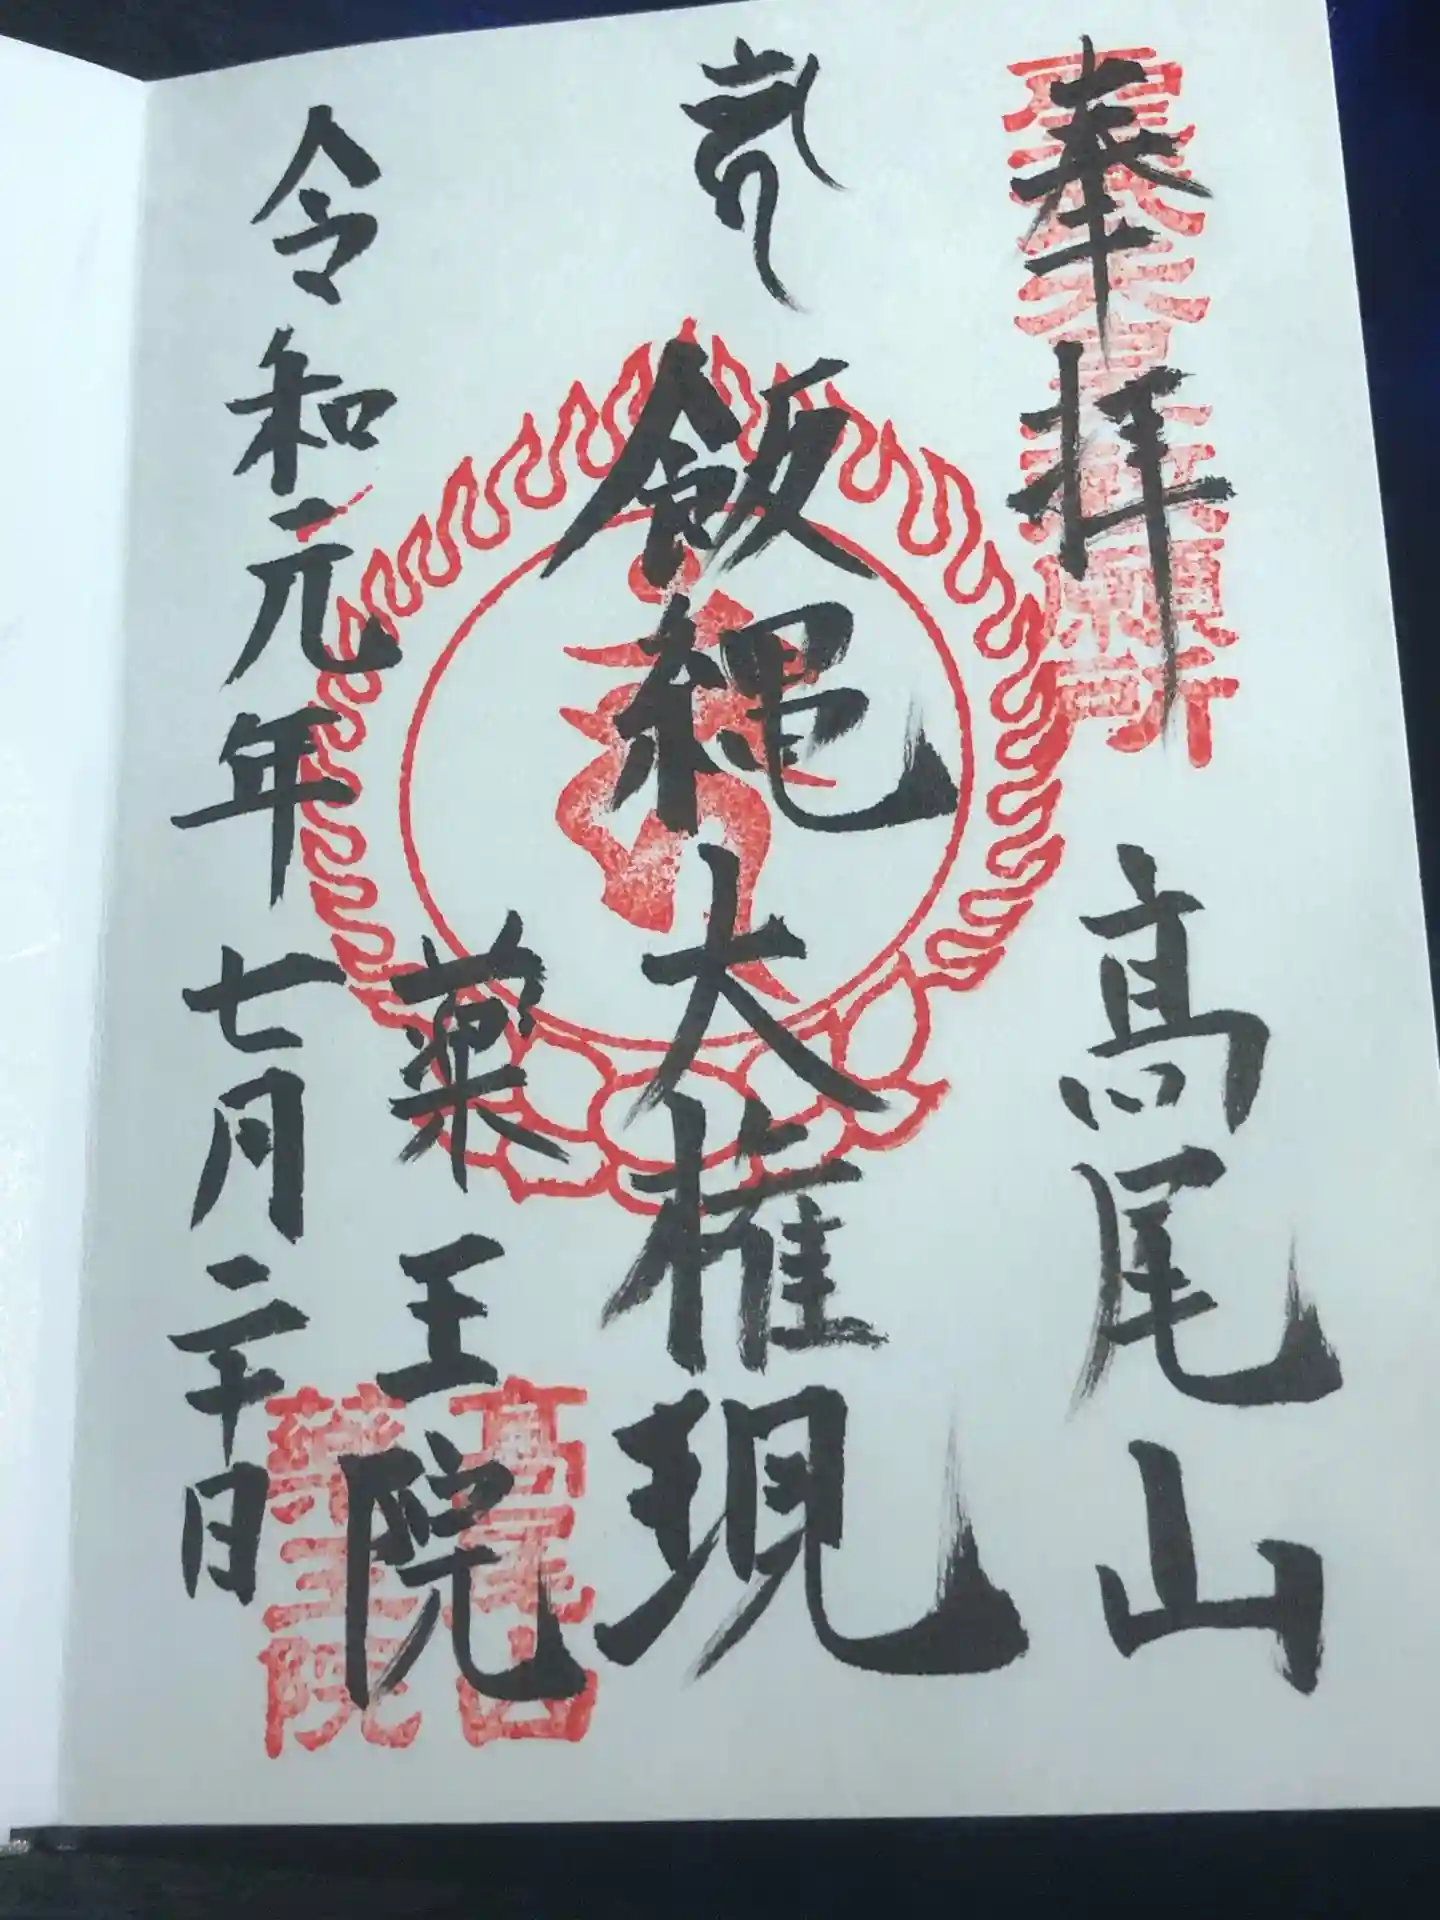 奉拝　高尾山
飯縄大権現
薬王院
令和元年七月二十日
高尾山
薬王院